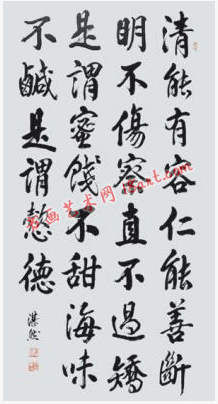 清能有容仁能善斷
明不傷察直不過矯
是謂蜜餞不甜海味
不鹹是謂懿德
湛然